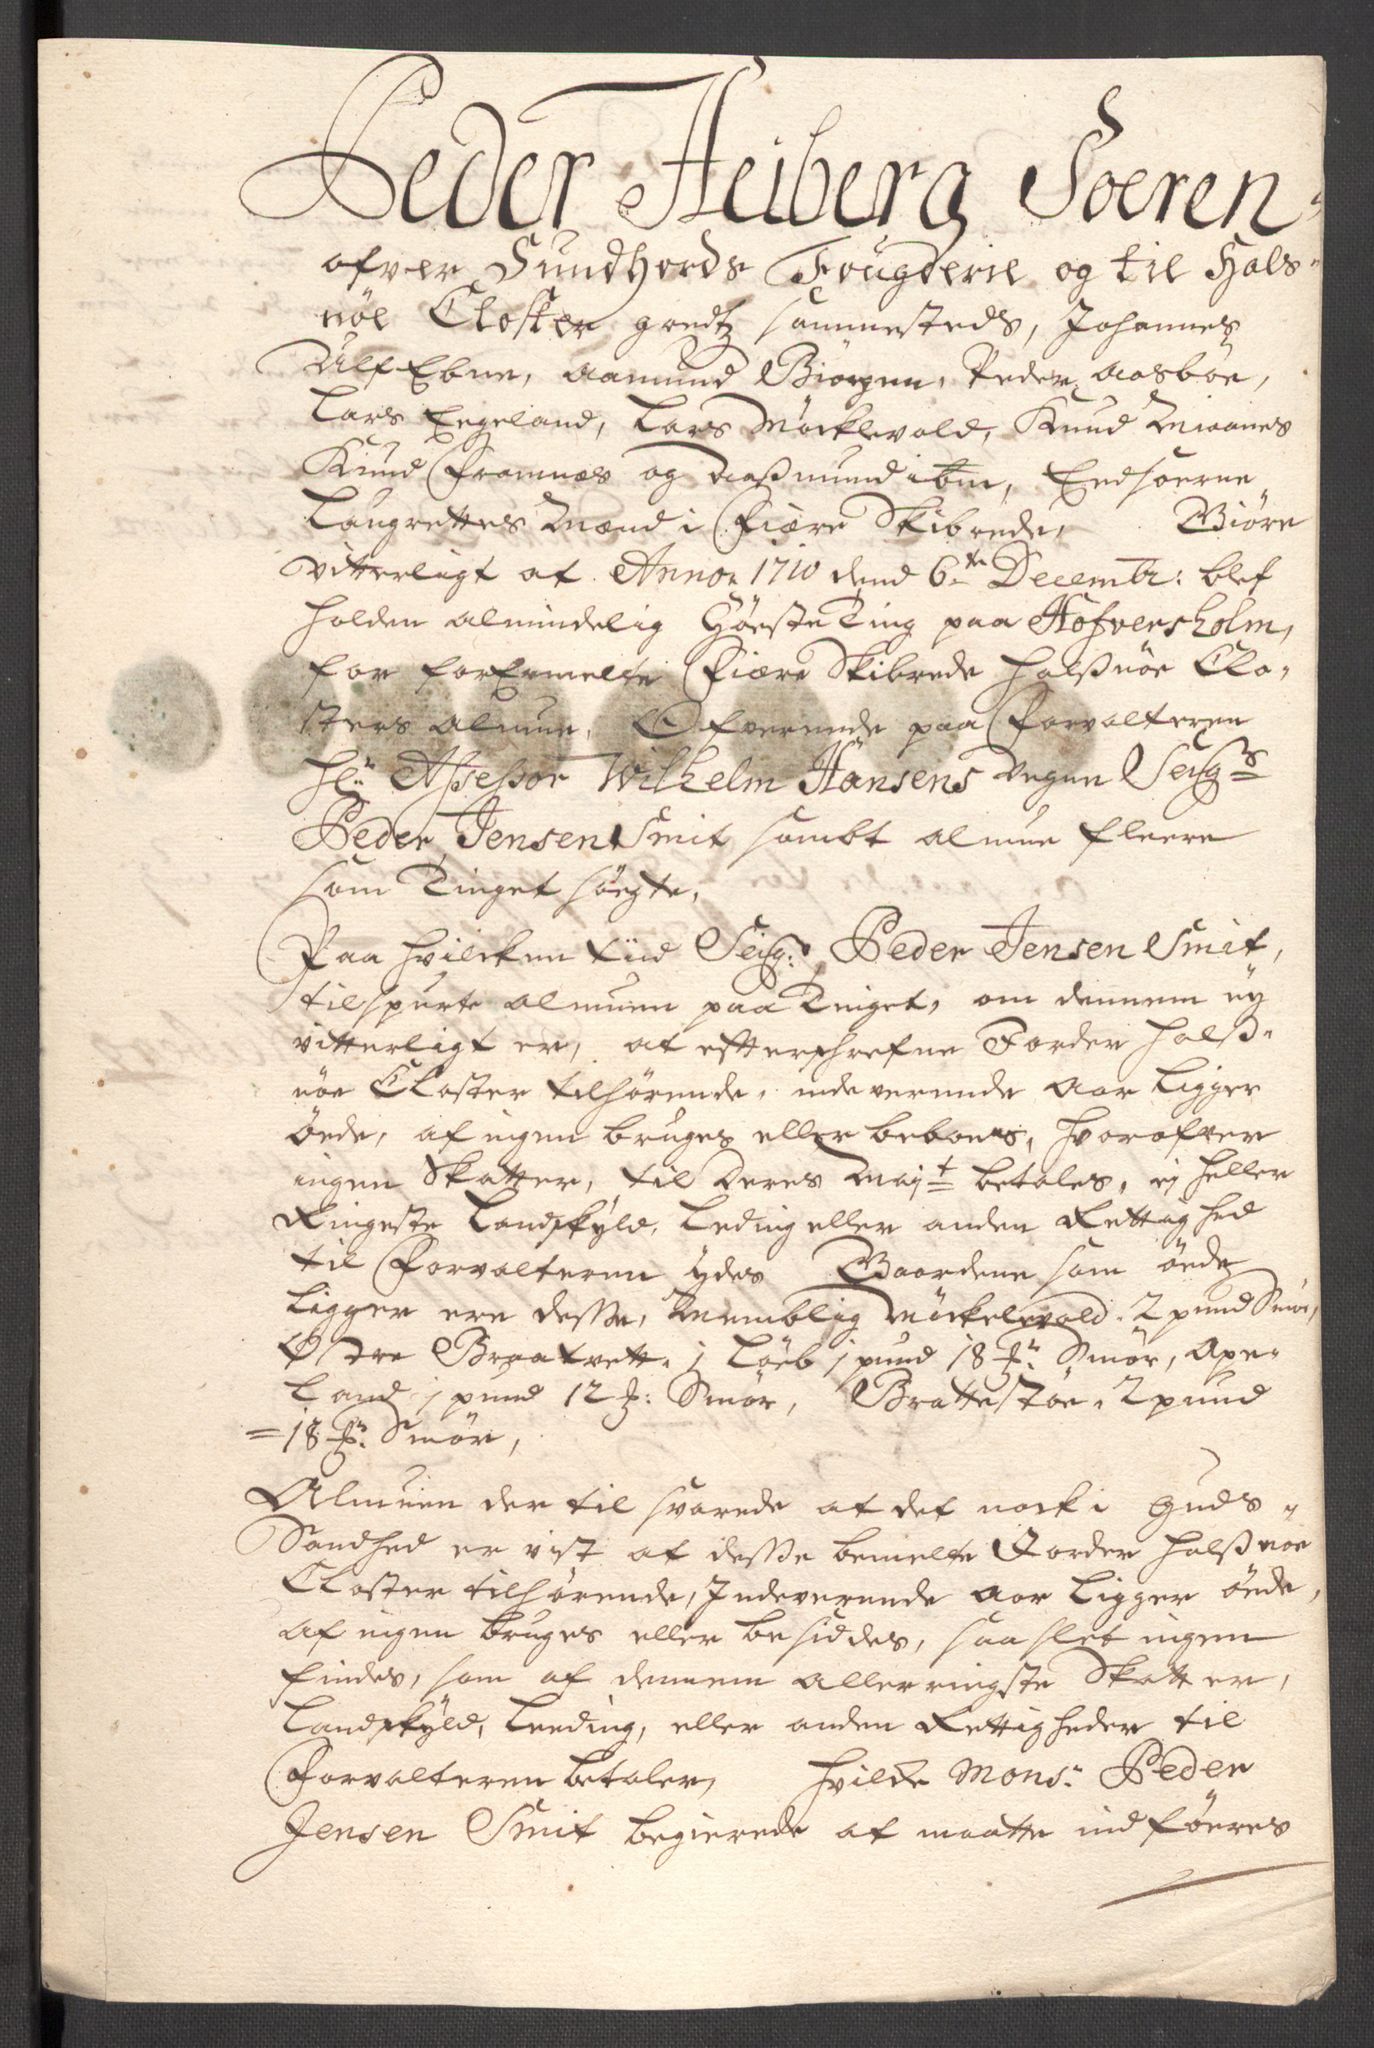 Peder Heiberg Soeren-
ofver Sundhords Fougderie og til Hals-
nöe Closter goedtz sammesteds, Johannes
Ulf Ebne, Aamund Biörgen, Peder Aasböe,
Lars Eegeland, Lars Möcklevold, Knud Miaanes
Knud Framnes og Aassmund ibm, Eedsoerne
Laugrettes Mænd i Fiære Skibrede, Giöre
vitterligt at Anno 1710 dend 6te Decembr: blef
holden almindelig Höeste Ting paa Hofversholm,
for forErmelte Fiære Skibrede Halssnöe Clo-
sters Almue, Ofverværende paa Forvalteren
Hr: Assessor Wilhelm Hansens vegne Seigrs
Peder Jensen Smit sambt Almue fleere
som Tinget söegte,
Paa hvilcken tiid Seigr. Peder Jensen Smit,
tilspurte Almuen paa Tinget, om dennem ey
vitterligt er, at effterschrefne Jorder Halss-
nöe Closter tilhörende, indeverende Aar Ligger
öede, af ingen bruges eller beboes, hvorofver
ingen Skatter, til Deres Mayt betales, ej heller
Ringeste Landskyld, Leding eller anden Rettighed
til Forvalteren ydes Gaardene som öede
Ligger ere desse, Nemblig Möckelevold 2 pund Smör,
Östre Braatvett 1 Löeb 1 pund 18 mr. Smör, Ape-
Land 1 pund 12 mr: Smör, Brattestöe 2 pund
=18 mr. Smör,
Almuen der til svarede at det nock i Guds-
Sandhed er vist at desse bemelte Jorder Halssnöe
Closter tilhörende, Indeverende Aar Ligger öede,
af ingen bruges eller besiddes, saa slet ingen
findes, som af dennem allerringste Skatter,
Landskyld, Leeding, eller anden Rettigheder til
Forvalteren betaler, hvilcke Monsr. Peder
Jensen Smit begierede at maatte indföeres